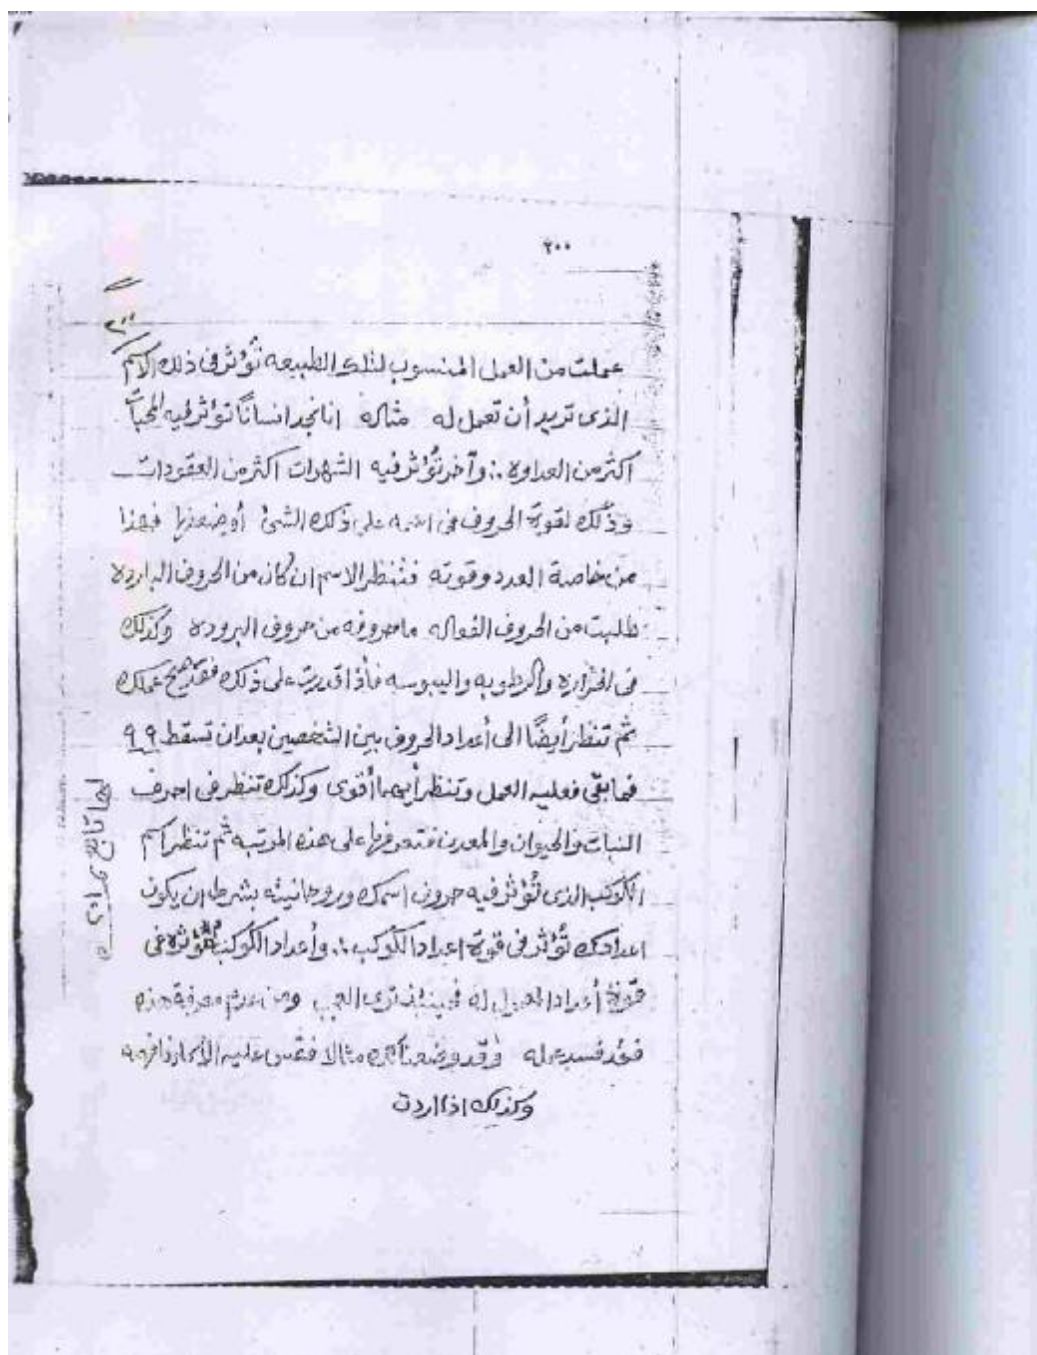 ٢٠٠
٢٠٠
عملت من العمل المنسوب لتلك الطبيعه تؤثر فى ذلك الاسم
الذى تريد أن تعمل له مثاله انا نجد انساناً تؤثر فيه المحبات
اكثر من العداوة ∴ وآخر تؤثر فيه الشهوات اكثر من العقودات
وذلك لقوة الحروف فى اسمه على ذلك الشئ أو ضعفها فهذا
من خاصة العدد وقوته فتنظر الاسم ان كان من الحروف البارده
طلبت من الحروف الفواله ما حروفه من حروف البروده وكذلك
فى الحراره والرطوبه واليبوسه فأذا قدرت على ذلك فقد صح عملك
ثم تنظر أيضًا الى أعداد الحروف بين الشخصين بعد ان تسقط ٩٩
فما بقى فعليه العمل وتنظر أيهما أقوى وكذلك تنظر فى احرف
النبات والحيوان والمعدن فتعرفها على هذه المرتبه ثم تنظر اسم
الكوكب الذى تُؤثر فيه حروف اسمك وروحانيته بشرط ان يكون
اعدادك تؤثر فى قوة اعداد الكوكب ∴ وأعداد الكوكب مؤثره فى
قوة أعداد المعمول له فحينئذ ترى العجب ومن عدم معرفة هذه
فقد فسد عمله وقد وضعنا لك مثالا فقس عليه
وكذلك اذا اردت
لها تابع